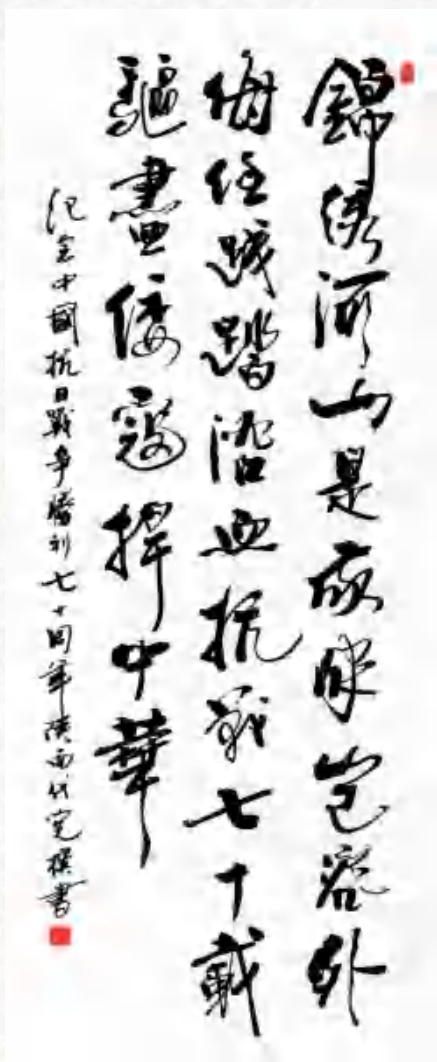 錦绣河山是岂容外
侮任踐踏浴血抗戰七十載
驅盡倭寇捍中華
纪念中國抗日戰争勝利七十周年陕西代撰書